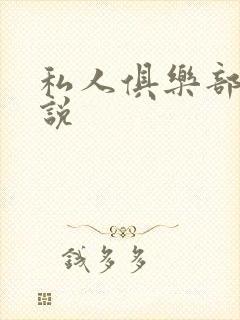 私人俱樂部
說
錢多多